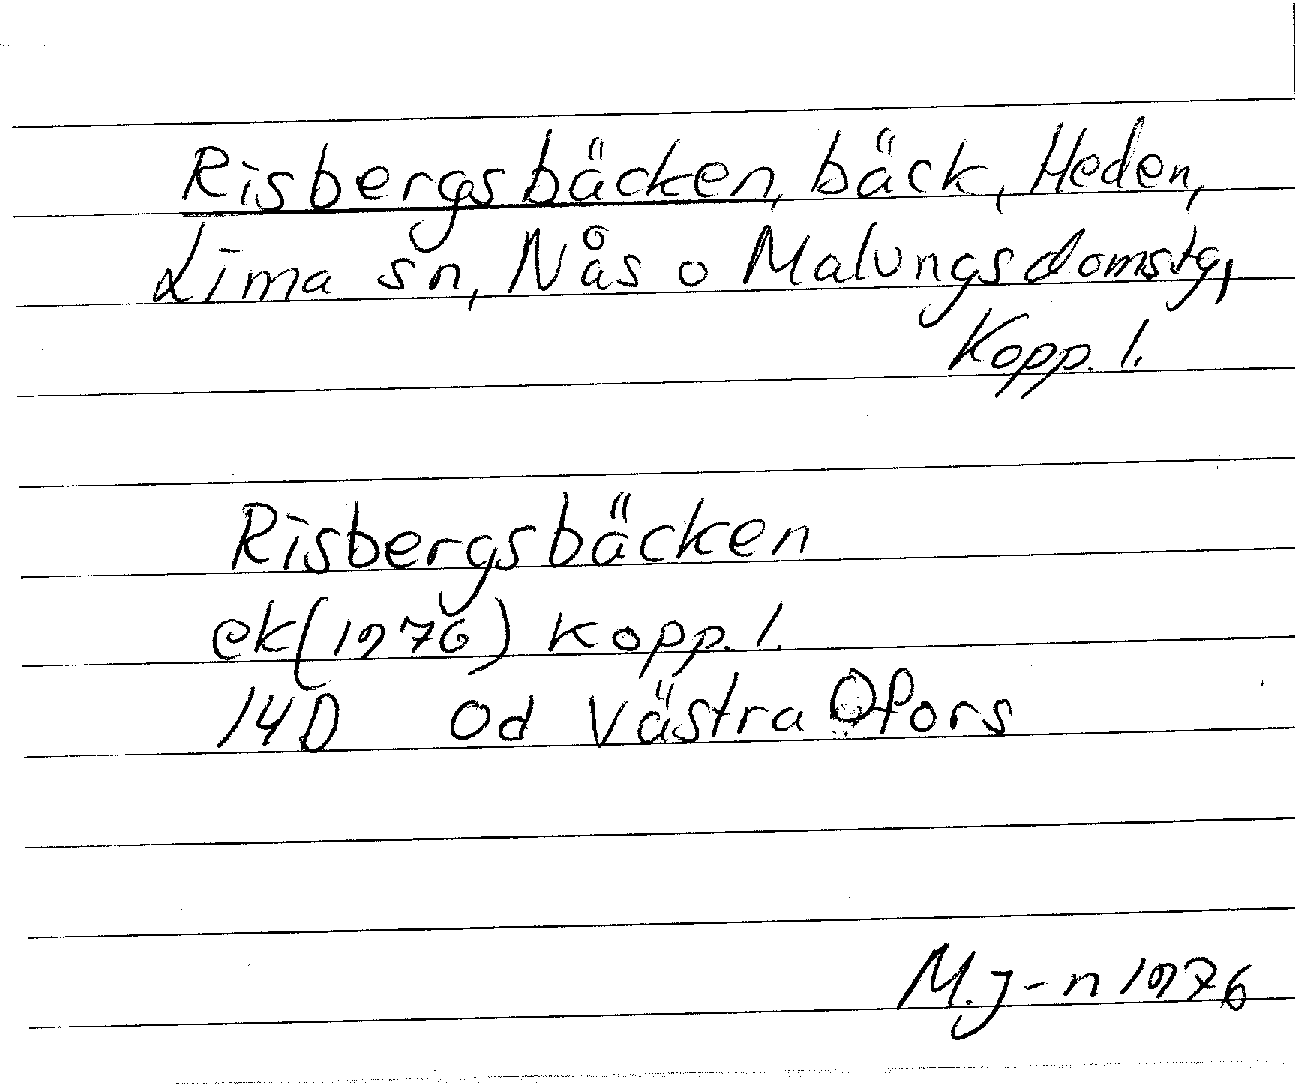 Risbergsbäcken, bäck, Heden,
Lima sn, Nås o Malungs domstg,
Kopp. l.
Risbergsbäcken
ek (1976) Kopp. l.
14D Od Västra Ofors
M. J-n 1976